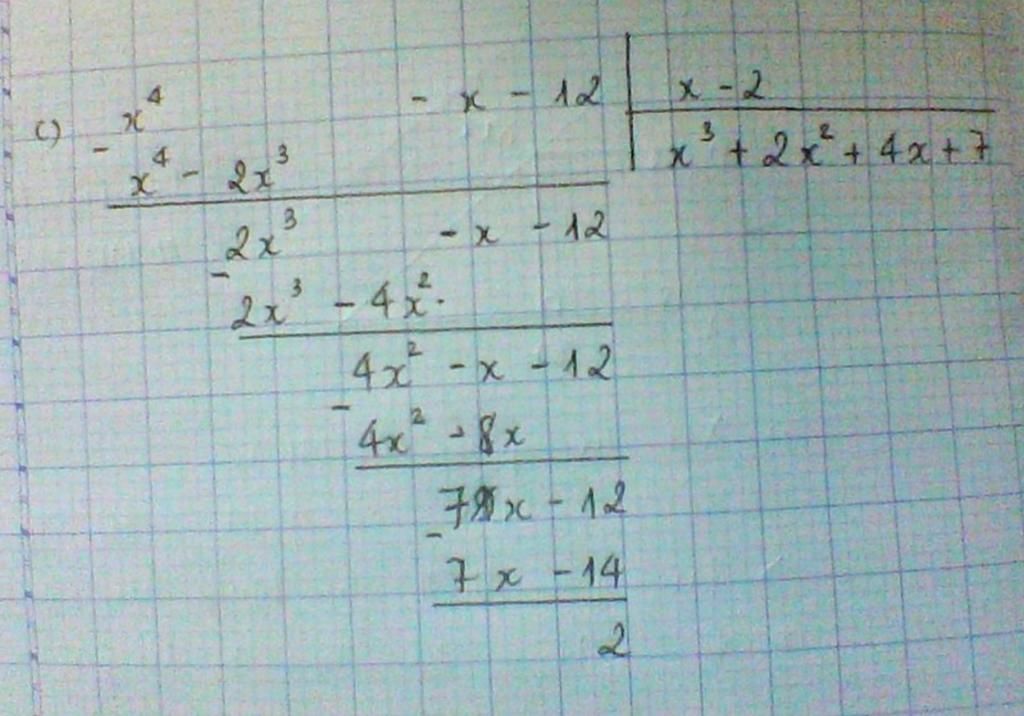 c) - x⁴ - x - 12 | x - 2
x⁴ - 2x³ | x³ + 2x² + 4x + 7
2x³ - x - 12
- 2x³ - 4x².
4x² - x - 12
- 4x² - 8x
7x - 12
- 7x - 14
2